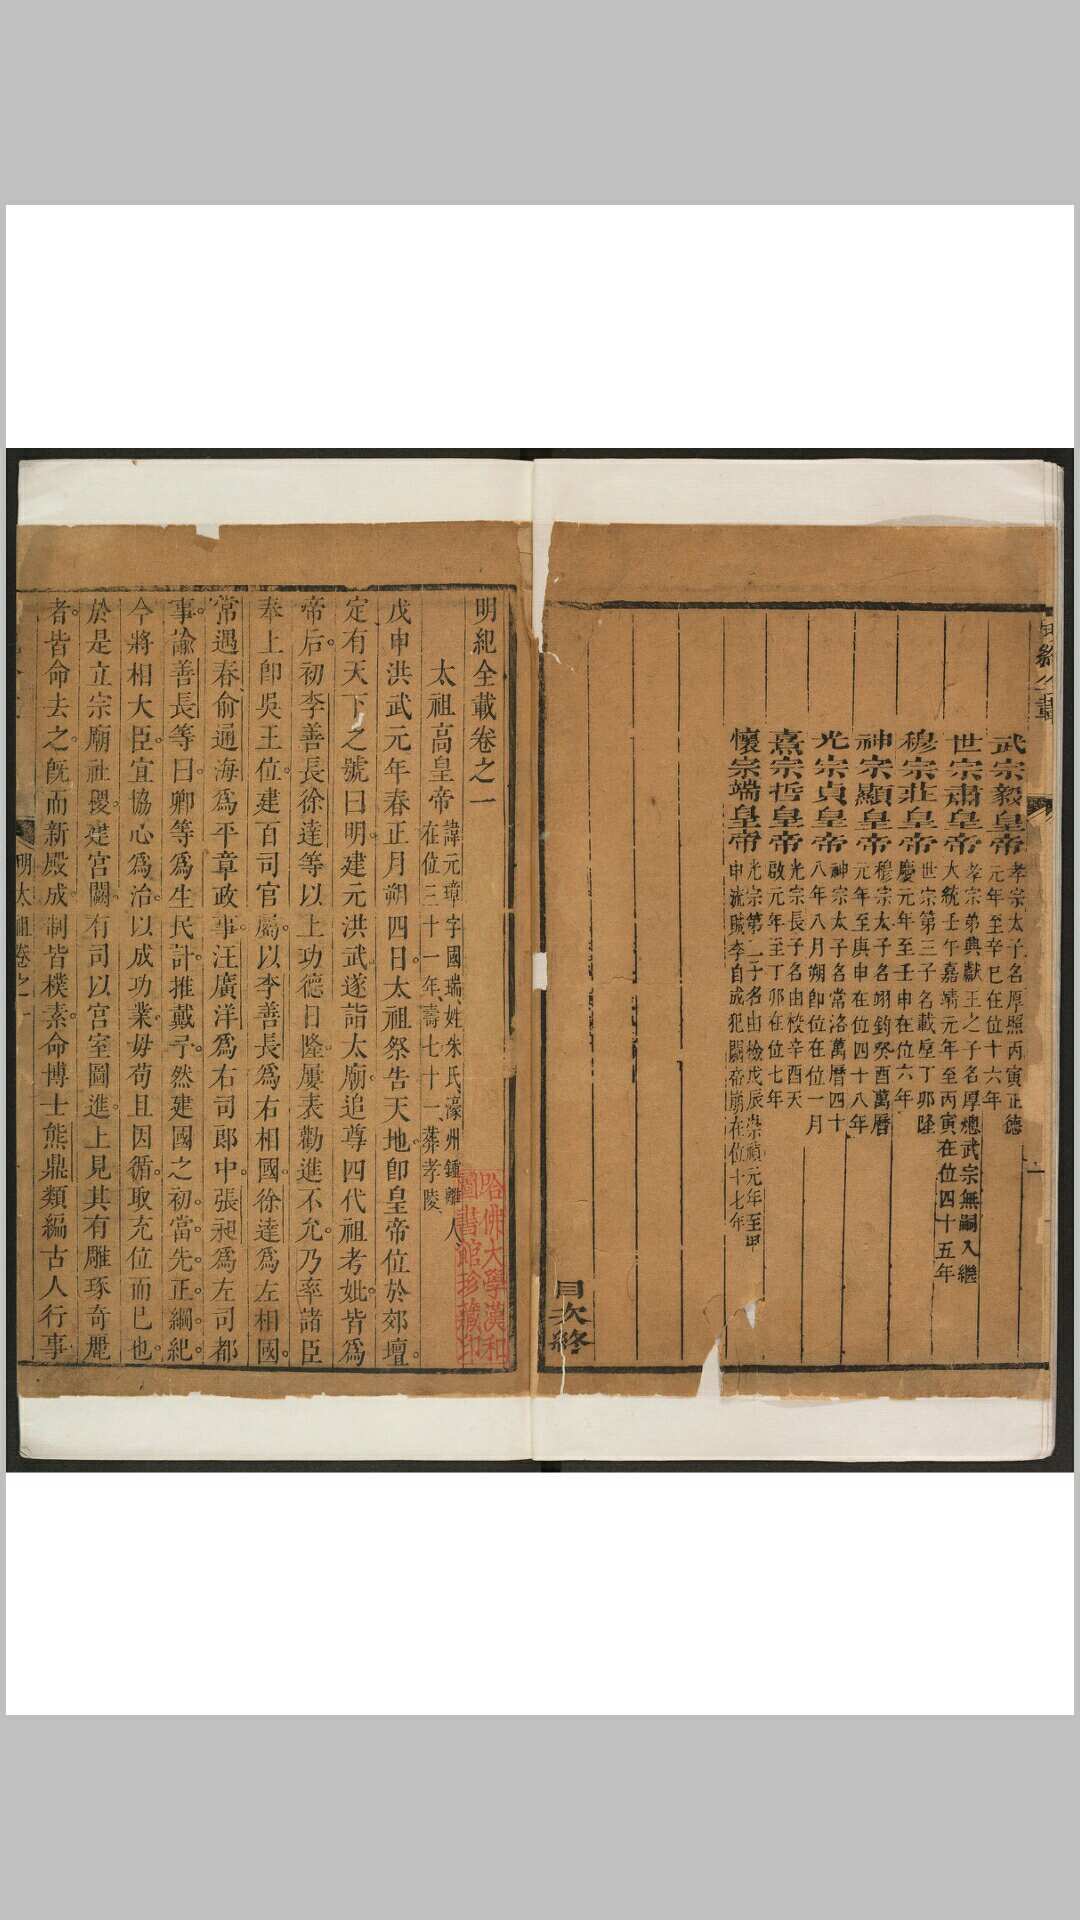 武宗毅皇帝 孝宗太子名厚照丙寅正德
元年至辛巳在位十六年
世宗肅皇帝 孝宗弟興獻王之子名厚熜武宗無嗣入繼
大統壬午嘉靖元年至丙寅在位四十五年
穆宗莊皇帝 世宗第三子名載垕丁卯隆
慶元年至壬申在位六年
神宗顯皇帝 穆宗太子名翊鈞癸酉萬曆
元年至庚申在位四十八年
光宗貞皇帝 神宗太子名常洛萬曆四十
八年八月朔即位在位一月
熹宗悊皇帝 光宗長子名由校辛酉天
啟元年至丁卯在位七年
懷宗端皇帝 光宗第二子名由檢戊辰崇禎元年至甲
申流賊李自成犯闕帝崩在位十七年
目次終
明紀全載卷之一
太祖高皇帝 諱元璋字國瑞姓朱氏濠州鍾離人
在位三十一年壽七十一葬孝陵
戊申洪武元年春正月朔四日太祖祭告天地即皇帝位於郊壇
定有天下之號曰明建元洪武遂詣太廟追尊四代祖考妣皆為
帝后初李善長徐達等以上功德日隆屢表勸進不允乃率諸臣
奉上即吳王位建百司官屬以李善長為右相國徐達為左相國
常遇春俞通海為平章政事汪廣洋為右司郎中張昶為左司都
事諭善長等曰卿等為生民計推戴予然建國之初當先正綱紀
今將相大臣宜協心為治以成功業毋苟且因循取充位而已也
於是立宗廟社稷建宮闕有司以宮室圖進上見其有雕琢奇麗
者皆命去之既而新殿成制皆樸素命博士熊鼎類編古人行事
明太祖卷之一
哈佛大學漢和
圖書館珍藏印